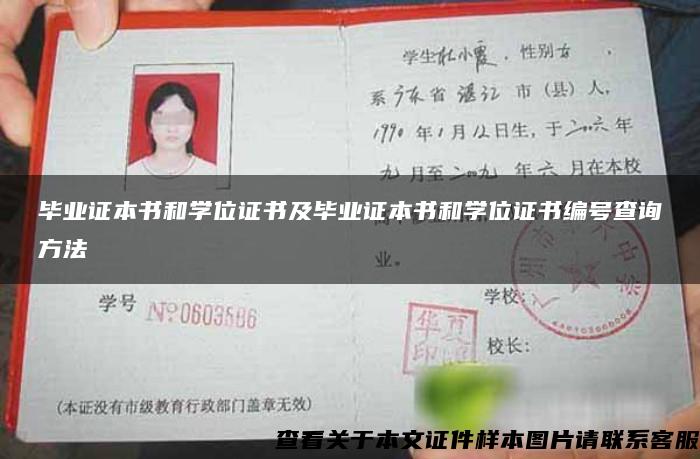 学生杜小霞，性别女，
系广东省湛江市（县）人，
1990年1月12日生，于二00六年
九月至二00九年六月在本校
毕业证本书和学位证书及毕业证本书和学位证书编号查询
方法
业。
学号 №0603586
学校：
校长：
(本证没有市级教育行政部门盖章无效)
查看关于本文证件样本图片请联系客服